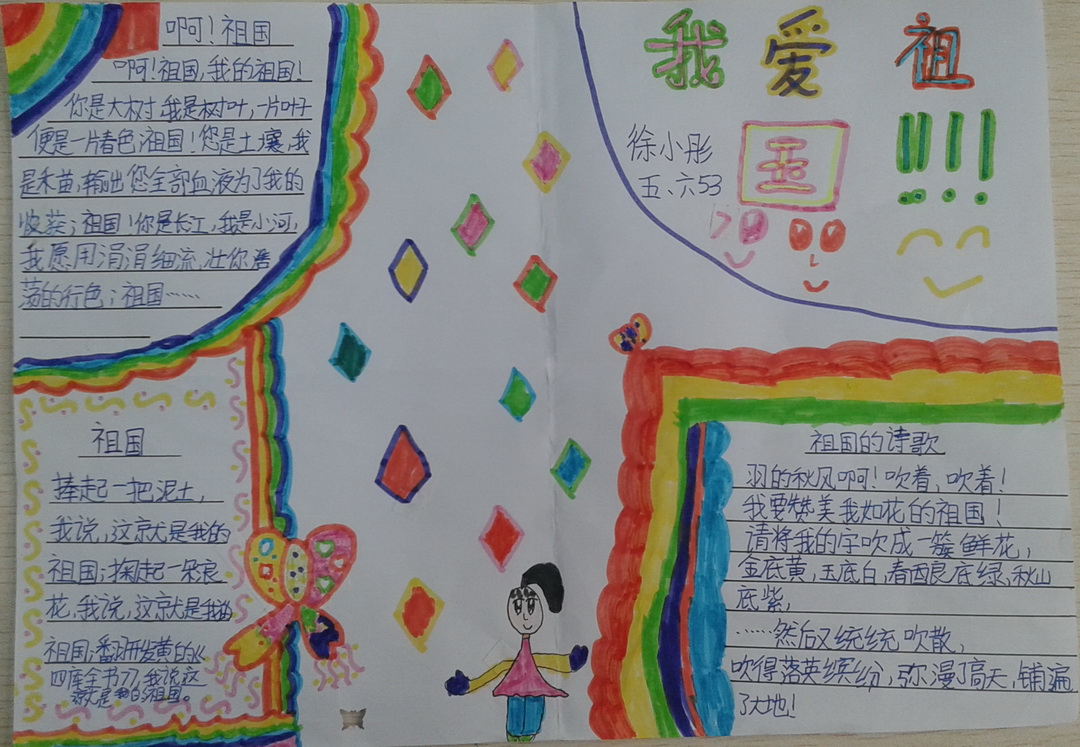 我爱祖
国!!!
徐小彤
五、六53
啊！祖国
啊！祖国，我的祖国！
你是大树，我是树叶，一片叶子
便是一片春色；祖国！您是土壤，我
是禾苗，输出您全部血液为了我的
收获；祖国！你是长江，我是小河，
我愿用涓涓细流，壮你浩
荡的行色；祖国……
祖国
捧起一把泥土，
我说，这就是我的
祖国；掬起一朵浪
花，我说，这就是我的
祖国；翻开发黄的《
四库全书》，我说，这
就是我的祖国。
祖国的诗歌
羽的秋风啊！吹着，吹着！
我要赞美我如花的祖国！
请将我的字吹成一簇鲜花，
金底黄，玉底白，春西底绿，秋山
底紫，
……然后又统统吹散，
吹得落英缤纷，弥漫了高天，铺遍
了大地！